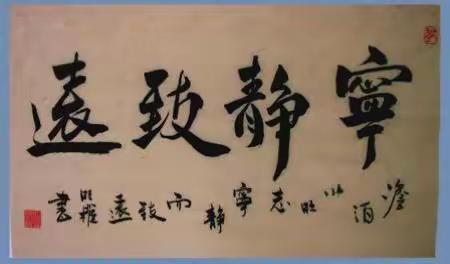 寧静致遠
澹泊以明志寧静而致遠
書